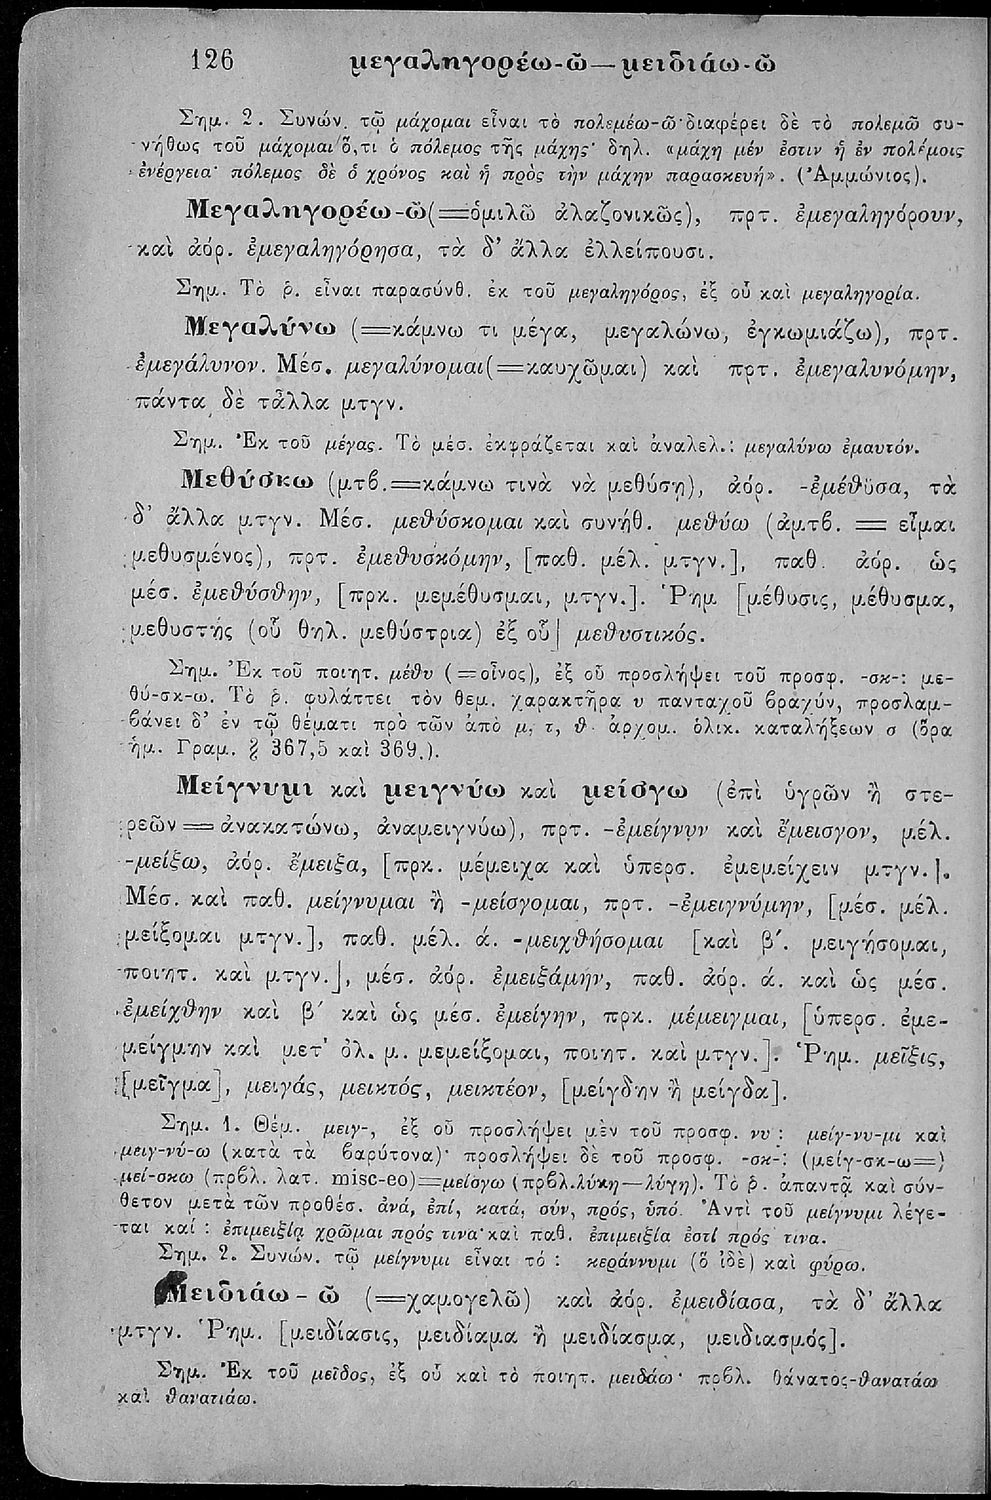 126 μεγαληγορέω-ῶ—μειδιάω-ῶ
Σημ. 2. Συνών. τῷ μάχομαι εἶναι τὸ πολεμέω-ῶ· διαφέρει δὲ τὸ πολεμῶ συ-
νήθως τοῦ μάχομαι ὅ,τι ὁ πόλεμος τῆς μάχης· δηλ. «μάχη μέν ἐστιν ἡ ἐν πολέμοις
ἐνέργεια· πόλεμος δὲ ὁ χρόνος καὶ ἡ πρὸς τὴν μάχην παρασκευή». (Ἀμμώνιος).
Μεγαληγορέω-ῶ (=ὁμιλῶ ἀλαζονικῶς), πρτ. ἐμεγαληγόρουν,
καὶ ἀόρ. ἐμεγαληγόρησα, τὰ δ’ ἄλλα ἐλλείπουσι.
Σημ. Τὸ ῥ. εἶναι παρασύνθ. ἐκ τοῦ μεγαληγόρος, ἐξ οὗ καὶ μεγαληγορία.
Μεγαλύνω (=κάμνω τι μέγα, μεγαλώνω, ἐγκωμιάζω), πρτ.
ἐμεγάλυνον. Μέσ. μεγαλύνομαι (=καυχῶμαι) καὶ πρτ. ἐμεγαλυνόμην,
πάντα δὲ τἆλλα μτγν.
Σημ. Ἐκ τοῦ μέγας. Τὸ μέσ. ἐκφράζεται καὶ ἀναλελ.: μεγαλύνω ἐμαυτόν.
Μεθύσκω (μτβ.=κάμνω τινὰ νὰ μεθύσῃ), ἀόρ. -ἐμέθυσα, τὰ
δ’ ἄλλα μτγν. Μέσ. μεθύσκομαι καὶ συνήθ. μεθύω (ἀμτβ. = εἶμαι
μεθυσμένος), πρτ. ἐμεθυσκόμην, [παθ. μέλ. μτγν.], παθ. ἀόρ. ὡς
μέσ. ἐμεθύσθην, [πρκ. μεμέθυσμαι, μτγν.]. Ῥημ. [μέθυσις, μέθυσμα,
μεθυστής (οὗ θηλ. μεθύστρια) ἐξ οὗ] μεθυστικός.
Σημ. Ἐκ τοῦ ποιητ. μέθυ (=οἶνος), ἐξ οὗ προσλήψει τοῦ προσφ. -σκ-: με-
θύ-σκ-ω. Τὸ ῥ. φυλάττει τὸν θεμ. χαρακτῆρα υ πανταχοῦ βραχύν, προσλαμ-
βάνει δ’ ἐν τῷ θέματι πρὸ τῶν ἀπὸ μ, τ, θ ἀρχομ. ὁλικ. καταλήξεων σ (ὅρα
ἡμ. Γραμ. § 367,5 καὶ 369.).
Μείγνυμι καὶ μειγνύω καὶ μείσγω (ἐπὶ ὑγρῶν ἢ στε-
ρεῶν = ἀνακατώνω, ἀναμειγνύω), πρτ. -ἐμείγνυν καὶ ἔμεισγον, μέλ.
-μείξω, ἀόρ. ἔμειξα, [πρκ. μέμειχα καὶ ὑπερσ. ἐμεμείχειν μτγν.].
Μέσ. καὶ παθ. μείγνυμαι ἢ -μείσγομαι, πρτ. -ἐμειγνύμην, [μέσ. μέλ.
μείξομαι μτγν.], παθ. μέλ. ά. -μειχθήσομαι [καὶ β΄. μειγήσομαι,
ποιητ. καὶ μτγν.], μέσ. ἀόρ. ἐμειξάμην, παθ. ἀόρ. ά. καὶ ὡς μέσ.
ἐμείχθην καὶ β΄ καὶ ὡς μέσ. ἐμείγην, πρκ. μέμειγμαι, [ὑπερσ. ἐμε-
μείγμην καὶ μετ’ ὀλ. μ. μεμείξομαι, ποιητ. καὶ μτγν.]. Ῥημ. μεῖξις,
[μεῖγμα], μειγάς, μεικτός, μεικτέον, [μείγδην ἢ μείγδα].
Σημ. 1. Θέμ. μειγ-, ἐξ οὗ προσλήψει μὲν τοῦ προσφ. νυ: μείγ-νυ-μι καὶ
μειγ-νύ-ω (κατὰ τὰ βαρύτονα)· προσλήψει δὲ τοῦ προσφ. -σκ-: (μείγ-σκ-ω=)
μεί-σκω (πρβλ. λατ. misc-eo)=μείσγω (πρβλ. λύκη—λύγη). Τὸ ῥ. ἀπαντᾷ καὶ σύν-
θετον μετὰ τῶν προθέσ. ἀνά, ἐπί, κατά, σύν, πρός, ὑπό. Ἀντὶ τοῦ μείγνυμι λέγε-
ται καί: ἐπιμειξίᾳ χρῶμαι πρός τινα· καὶ παθ. ἐπιμειξία ἐστί πρός τινα.
Σημ. 2. Συνών. τῷ μείγνυμι εἶναι τό: κεράννυμι (ὃ ἰδὲ) καὶ φύρω.
Μειδιάω-ῶ (=χαμογελῶ) καὶ ἀόρ. ἐμειδίασα, τὰ δ’ ἄλλα
μτγν. Ῥημ. [μειδίασις, μειδίαμα ἢ μειδίασμα, μειδιασμός].
Σημ. Ἐκ τοῦ μεῖδος, ἐξ οὗ καὶ τὸ ποιητ. μειδάω· πρβλ. θάνατος-θανατάω
καὶ θανατιάω.